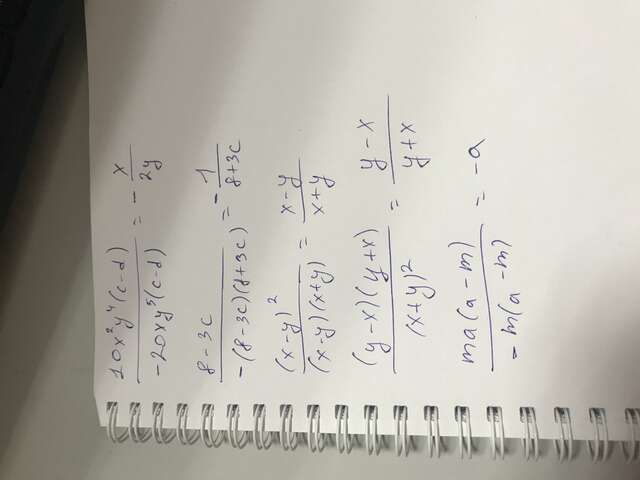 10x²y⁴(c-d) / -20xy⁵(c-d) = - x / 2y
8-3c / -(8-3c)(8+3c) = - 1 / 8+3c
(x-y)² / (x-y)(x+y) = x-y / x+y
(y-x)(y+x) / (x+y)² = y-x / y+x
ma(a-m) / -m(a-m) = -a